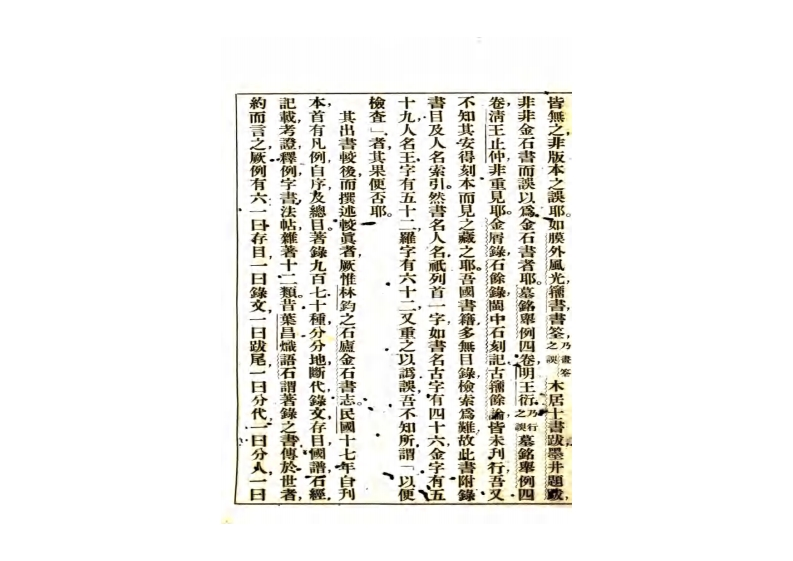 皆無之,非版本之誤耶。如膜外風光,籀書書筌乃畫筌之誤木居士書跋,墨井題跋,
非非金石書而誤以爲金石書者耶。墓銘舉例四卷,明王衍乃行之誤墓銘舉例四
卷,淸王止仲,非重見耶。金屑錄,石餘錄,閩中石刻記,古籀餘論,皆未刊行,吾又
不知其安得刻本而見之藏之耶。吾國書籍多無目錄,檢索爲難,故此書附錄
書目及人名索引。然書名人名,祇列首一字,如書名古字有四十六,金字有五
十九,人名王字有五十二,羅字有六十二,又重之以譌誤,吾不知所謂「以便
檢查」者,其果便否耶。
其出書較後而撰述較眞者,厥惟林鈞之石廬金石書志。民國十七年自刊
本,首有凡例自序及總目。著錄九百七十種,分分地斷代錄文存目國譜石經
記載考證釋例字書法帖雜著十二類。昔葉昌熾語石謂著錄之書傳於世者,
約而言之,厥例有六,一曰存目,一曰錄文,一曰跋尾,一曰分代,一曰分人,一曰